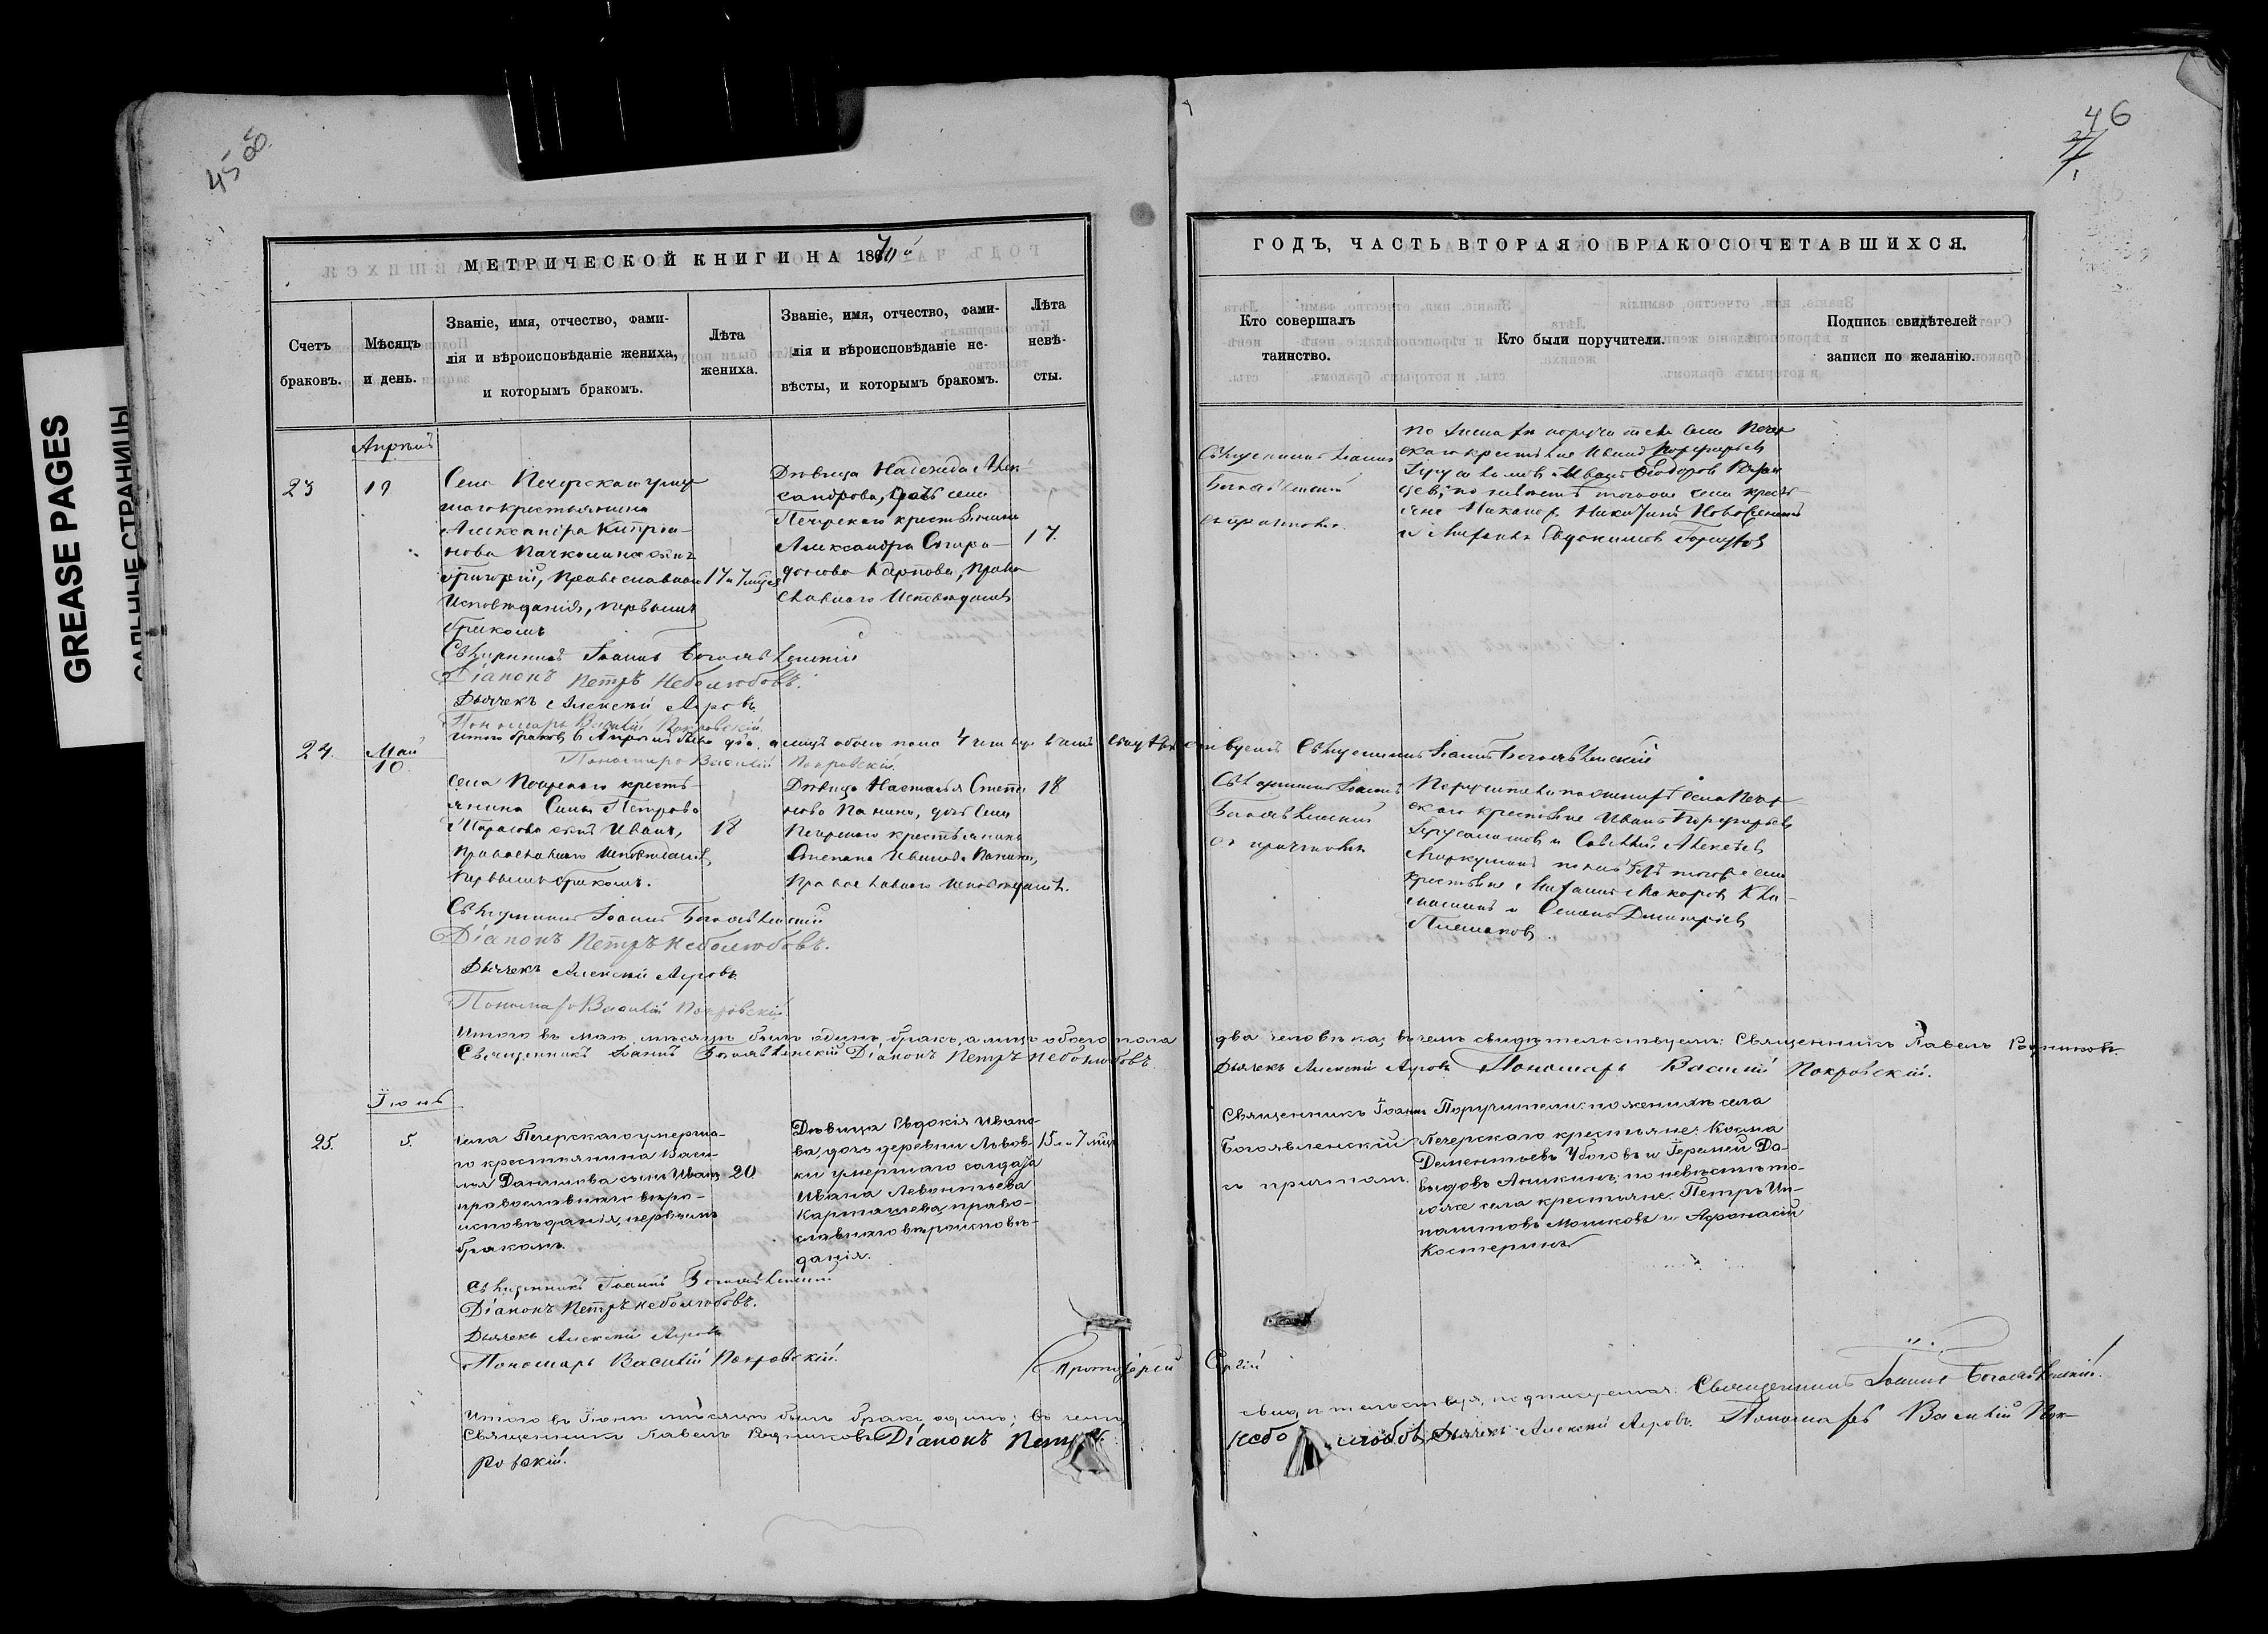 GREASE PAGES
САЛЬНЫЕ СТРАНИЦЫ
45 об.
46
МЕТРИЧЕСКОЙ КНИГИ НА 1870й
ГОДЪ, ЧАСТЬ ВТОРАЯ О БРАКОСОЧЕТАВШИХСЯ.
Счетъ браковъ.
Мѣсяцъ и день.
Званіе, имя, отчество, фами-
лія и вѣроисповѣданіе жениха,
и которымъ бракомъ.
Лѣта
жениха.
Званіе, имя, отчество, фами-
лія и вѣроисповѣданіе не-
вѣсты, и которымъ бракомъ.
Лѣта
невѣ-
сты.
Кто совершалъ
таинство.
Кто были поручители.
Подпись свидѣтелей
записи по желанію.
Апрѣль
23
19
Села Печерскаго умер
шаго крестьянина
Александра
сынъ
Григорій, Православнаго
Исповѣданія, первымъ
бракомъ
17 и 7 мѣс
Дѣвица Надежда Алек
сандрова, дочь села
Печерскаго крестьянина
Александра Спири-
донова Карпова, Право
славнаго Исповѣданія
17.
Священникъ Іоаннъ
Богоявленскій
съ причтомъ.
по женихѣ поручители села Печер
скаго крестьяне Иванъ Порфирьевъ
и Иванъ Ѳеодоровъ
по невѣстѣ тогоже села кресть
яне Никаноръ Никитинъ
и Евдокимовъ
Священникъ Іоаннъ Богоявленскій
Діаконъ Петръ Неболюбовъ.
Дьячекъ Алексѣй Агровъ.
Пономарь Василій Покровскій.
Итого браковъ в Апрѣлѣ было два, а лицъ обоего пола 4 въ чемъ свидѣтельствуемъ Священникъ Іоаннъ Богоявленскій
Пономарь Василій Покровскій.
24.
Май
10
Села Печерскаго кресть-
янина Силы Петрова
сынъ Иванъ,
Православнаго Исповѣданія,
первымъ бракомъ.
18
Дѣвица Настасья Степа
нова Панина, дочь села
Печерскаго крестьянина
Степана Иванова Панина,
Православнаго Исповѣданія.
18
Священникъ Іоаннъ
Богоявленскій
съ причтомъ
Поручители по женихѣ села Печер
скаго крестьяне Иванъ Порфирьевъ
и Савелій Алексѣевъ
по невѣстѣ тогоже села
крестьяне Макаровъ
и Семенъ Дмитріевъ
Священникъ Іоаннъ Богоявленскій
Діаконъ Петръ Неболюбовъ.
Дьячекъ Алексѣй Агровъ.
Пономарь Василій Покровскій.
Итого въ маѣ мѣсяцѣ былъ одинъ бракъ, а лицъ обоего пола два человѣка; въ чемъ свидѣтельствуемъ: Священникъ Павелъ Родниковъ.
Священникъ Іоаннъ Богоявленскій Діаконъ Петръ Неболюбовъ. Дьячекъ Алексѣй Агровъ Пономарь Василій Покровскій.
Іюнь
25.
5.
Села Печерскаго умерша-
го крестьянина Васи-
лья Данилова сынъ Иванъ
православнаго вѣро-
исповѣданія, первымъ
бракомъ.
20
Дѣвица Евдокія Ивано-
ва, дочь деревни Львов-
ки умершаго солдата
Ивана Леонтьева
Карташева, право-
славнаго вѣроисповѣ-
данія.
15 л и 7 мѣс
Священникъ Іоаннъ
Богоявленскій
съ причтомъ.
Поручители: по женихѣ села
Печерскаго крестьяне: Косма
Дементьевъ Убоговъ и Іеремей Да-
выдовъ Аникинъ; по невѣстѣ то-
гоже села крестьяне: Петръ Ип-
политовъ Мошковъ и Афанасій
Костеринъ
Священникъ Іоаннъ Богоявленскій
Діаконъ Петръ Неболюбовъ.
Дьячекъ Алексѣй Агровъ
Пономарь Василій Покровскій.
Протоіерей Сергій
Итого въ Іюнѣ мѣсяцѣ былъ бракъ одинъ; въ чемъ свидѣтельствуя, подписуемся: Священникъ Іоаннъ Богоявленскій.
Священникъ Павелъ Родниковъ Діаконъ Петръ Неболюбовъ, Дьячекъ Алексѣй Агровъ. Пономарь Василій Пок-
ровскій.